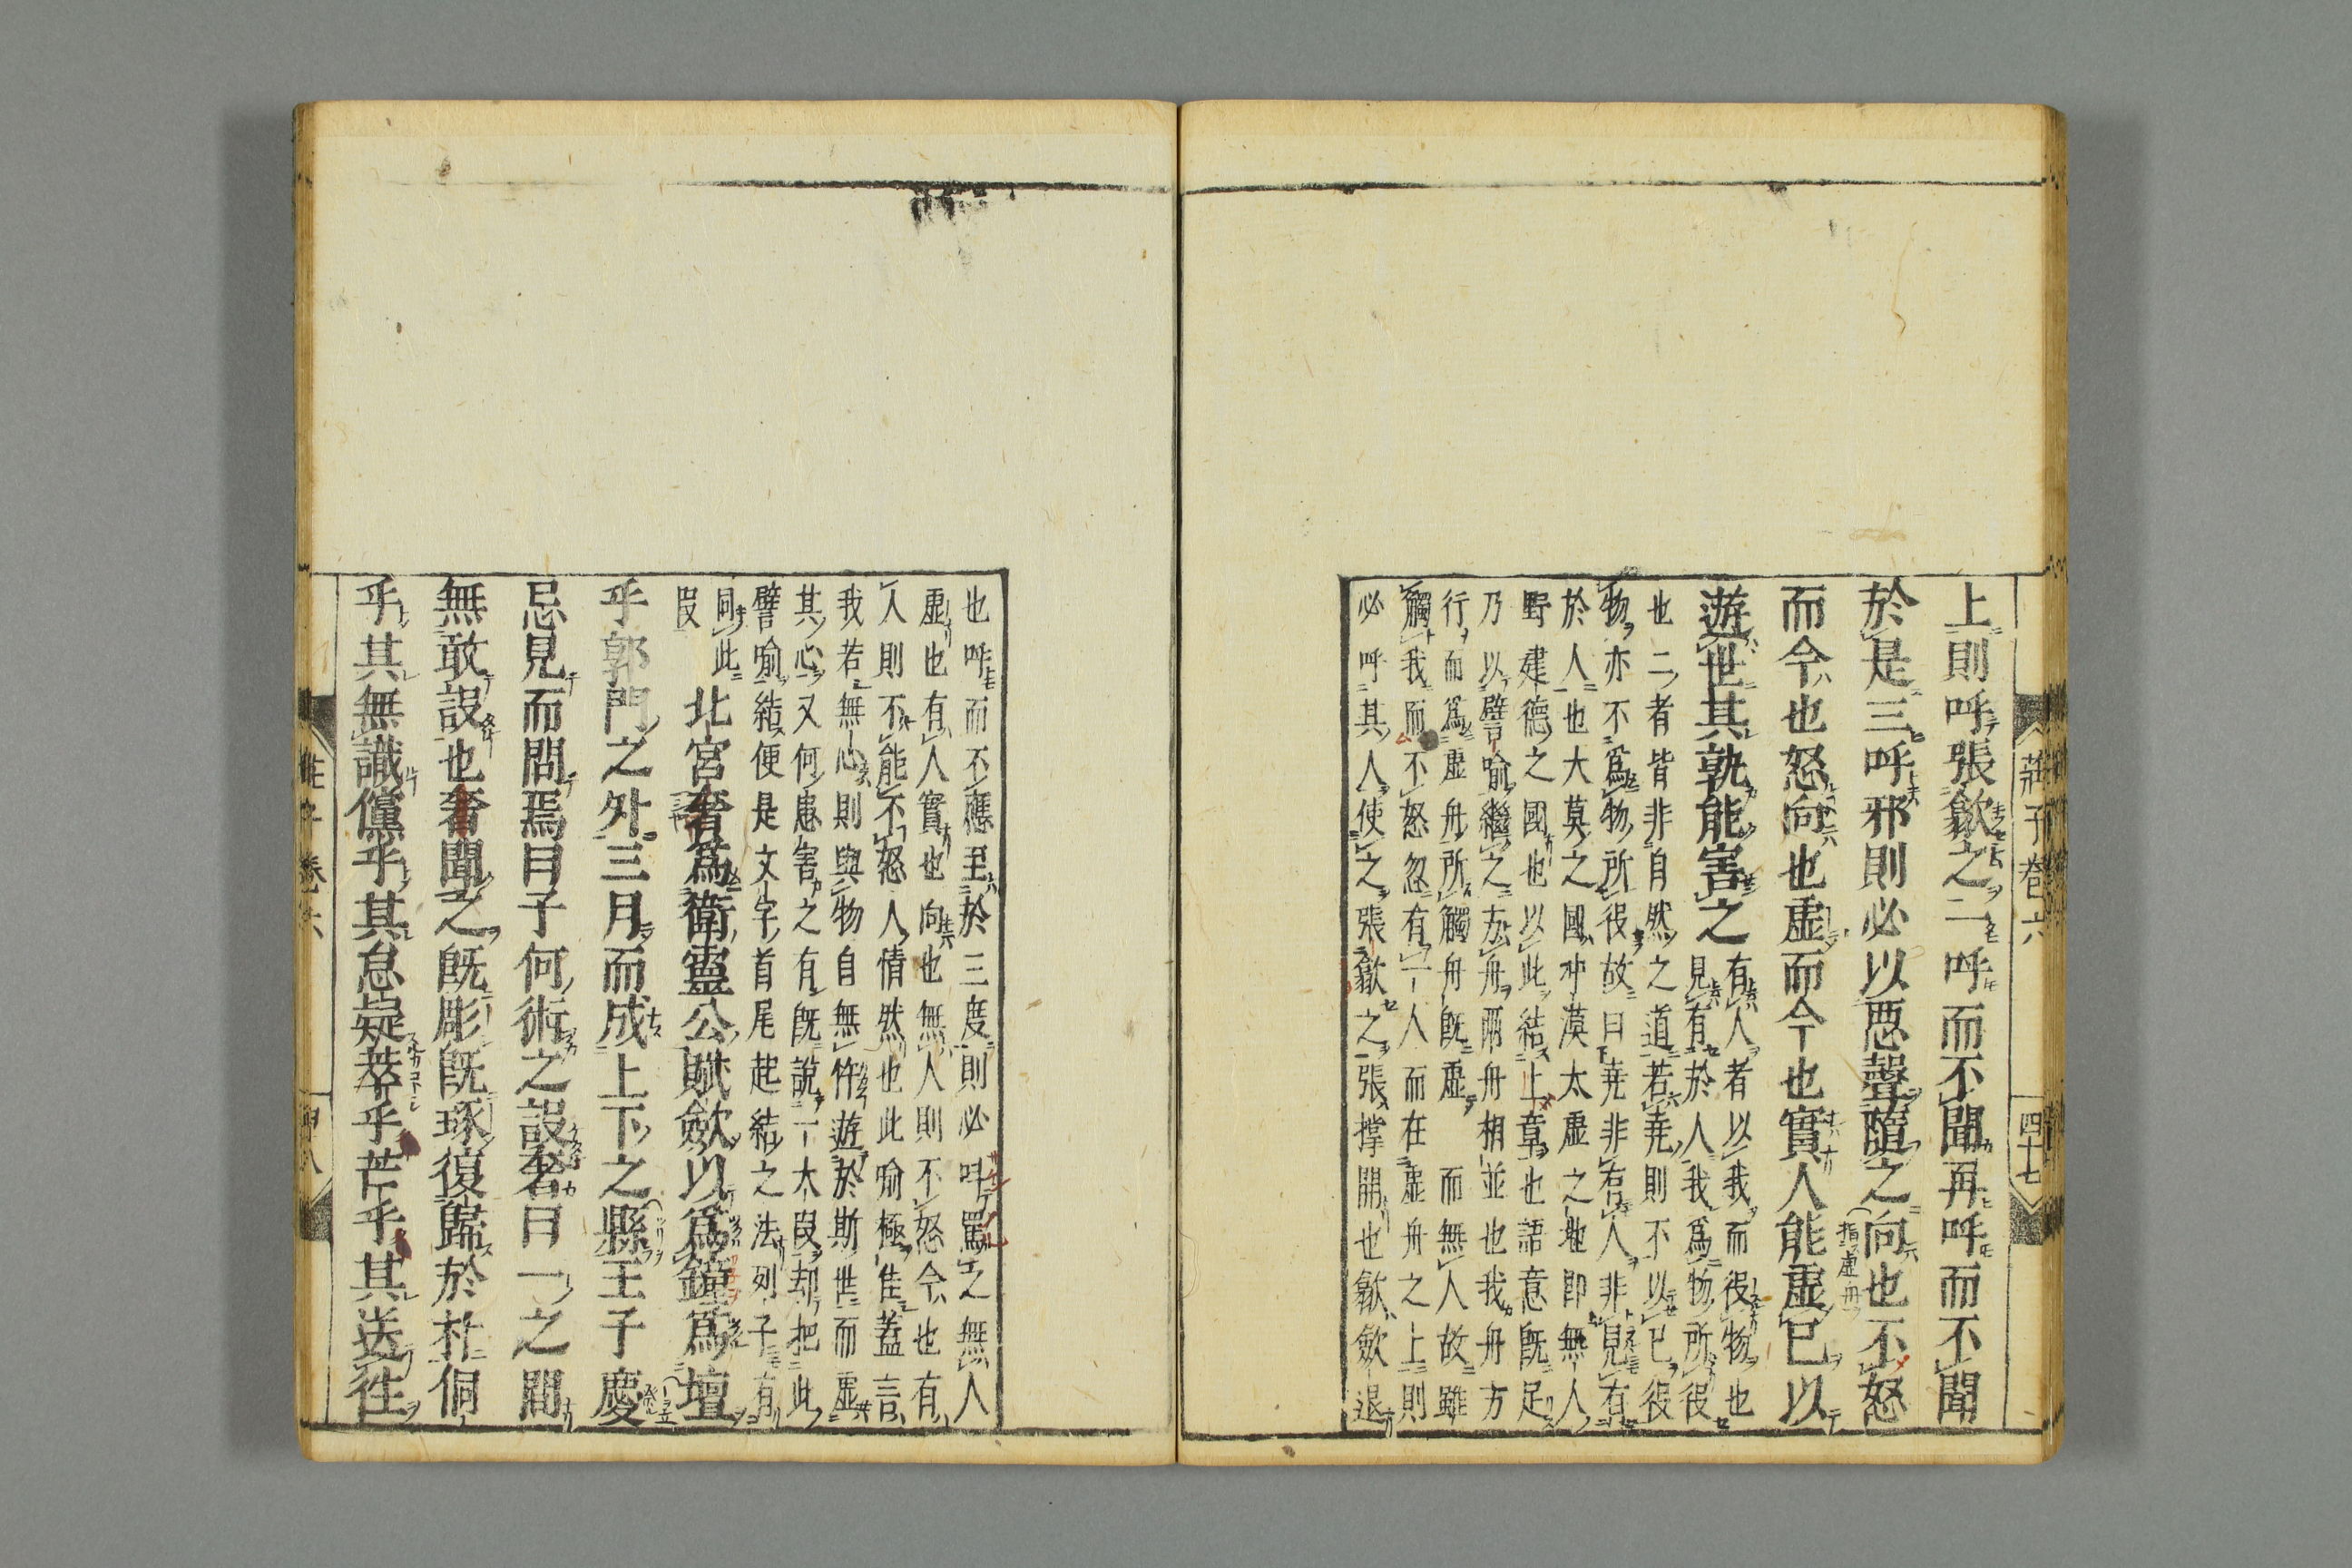 莊子卷六
四十七
上則呼張歙之一呼而不聞再呼而不聞
於是三呼邪則必以惡聲隨之向也不怒
指虛舟
而今也怒向也虛而今也實人能虛己以
遊世其孰能害之
有人者以我而役物也
見有於人我爲物所役
也二者皆非自然之道若堯則不以己役
物亦不爲物所役故曰堯非有人非見有
於人也大莫之國冲漠太虛之地卽無人
野建德之國也以此結上章也語意旣足
乃以譬喻繼之方舟兩舟相並也我舟方
行而爲虛舟所觸舟旣虛而無人故雖
觸我而不怒忽有一人而在虛舟之上則
必呼其人使之張歙之張撑開也歙歛退
也呼而不應至於三度則必叫罵之無人
虛也有人實也向也無人則不怒今也有
人則不能不怒人情然也此喻極佳蓋言
我若無心則與物自無忤遊於斯世而虛
其心又何患害之有旣說一大段却把此
譬喻結便是文字首尾起結之法列子有
同此
段
北宮奢爲衛靈公賦歛以爲鐘爲壇
乎郭門之外三月而成上下之縣王子慶
忌見而問焉曰子何術之設奢曰一之間
無敢設也奢聞之旣彫旣琢復歸於朴侗
乎其無識儻乎其怠疑萃乎芒乎其送往